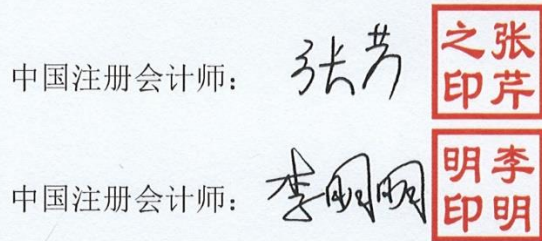 中国注册会计师： 张芹 张芹之印
中国注册会计师： 李明明 李明明印